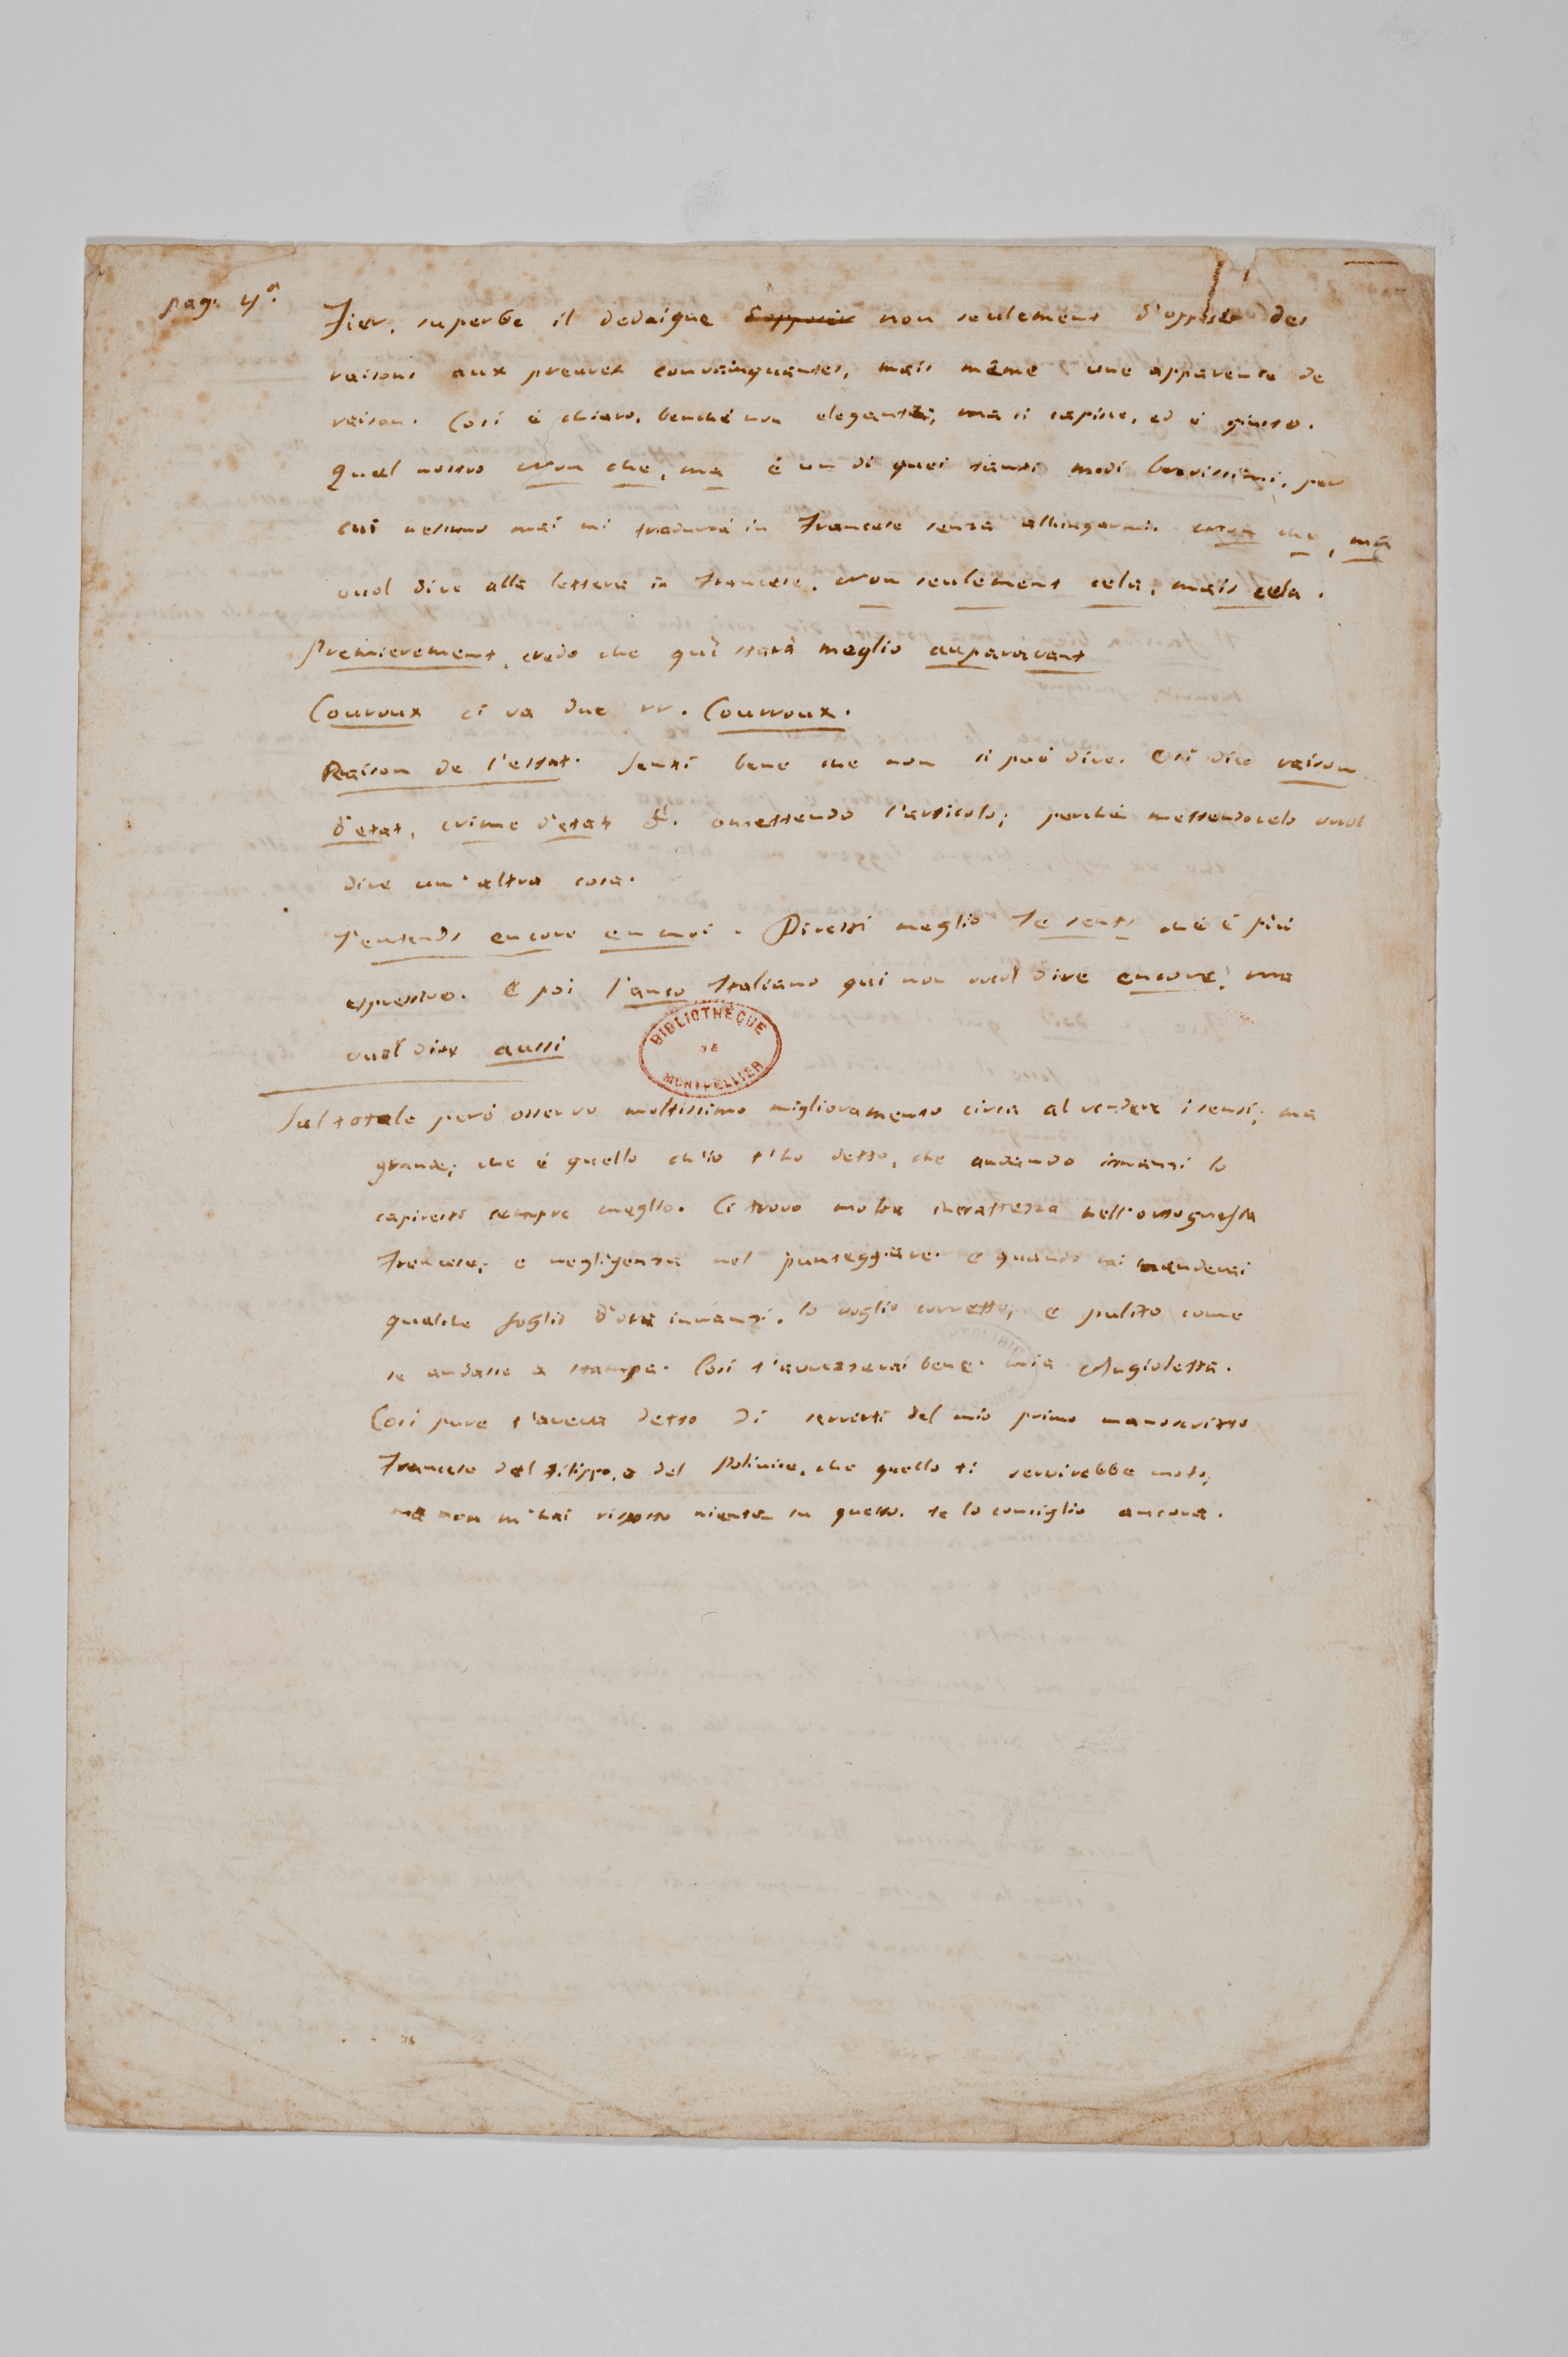 pag. 4ª.
Fier, superbe il dedaigne d'opposer non seulement d'opposer des
raisons aux preuves convainquantes, mais même une apparence de
raison. Così è chiaro, benché non elegante; ma si capisce, ed è giusto.
Quel nostro Non che, ma è un di quei tanti modi brevissimi, per
cui nessuno mai mi tradurrà in Francese senza allungarmi. Non che, ma
vuol dire alla lettera in Francese. Non seulement cela, mais cela.
Premierement, credo che quì starà meglio auparavant
Couroux ci va due rr. Courroux.
Raison de l'estat. Senti bene che non si può dire. Si dice raison
d'etat, crime d'etat &. omettendo l'articolo; perché mettendocelo vuol
dire un'altra cosa.
J'entends encore en moi. Direi meglio Je sents che è più
espressivo. E poi l'anco Italiano qui non vuol dire encore, ma
vuol dire aussi
BIBLIOTHEQUE
DE
MONTPELLIER
Sul totale però osservo moltissimo miglioramento circa al rendere i sensi; ma
grande; che è quello ch'io t'ho detto, che andando innanzi lo
capiresti sempre meglio. Ci trovo molta inesattezza nell'ortografia
Francese; e negligenza nel punteggiare. e quando mi manderai
qualche foglio d'ora innanzi, lo voglio corretto, e pulito come
se andasse a stampa. Così t'avvezzerai bene. mia Angioletta.
Così pure t'aveva detto di servirti del mio primo manoscritto
Francese del Filippo, e del Polinice, che quello ti servirebbe molto;
ma non m'hai risposto niente su questo. te lo consiglio ancora.